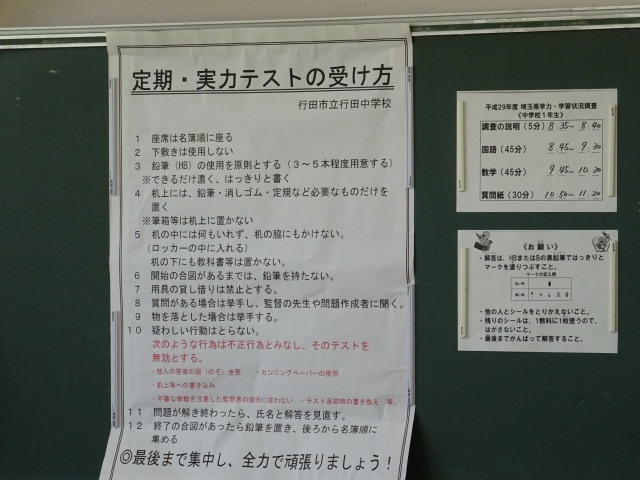 定期・実力テストの受け方
行田市立行田中学校
1 座席は名簿順に座る
2 下敷きは使用しない
3 鉛筆(HB)の使用を原則とする(3〜5本程度用意する)
※できるだけ濃く、はっきりと書く
4 机上には、鉛筆・消しゴム・定規など必要なものだけを
置く
※筆箱等は机上に置かない
5 机の中には何もいれず、机の脇にもかけない。
(ロッカーの中に入れる)
机の下にも教科書等は置かない。
6 開始の合図があるまでは、鉛筆を持たない。
7 用具の貸し借りは禁止とする。
8 質問がある場合は挙手し、監督の先生や問題作成者に聞く。
9 物を落とした場合は挙手する。
10 疑わしい行動はとらない。
次のような行為は不正行為とみなし、そのテストを
無効とする。
・他人の答案の覗(のぞ)き見 ・カンニングペーパーの使用
・机上等への書き込み
・不審な挙動を注意した監督者の指示に従わない ・テスト返却時の書き換え 等。
11 問題が解き終わったら、氏名と解答を見直す。
12 終了の合図があったら鉛筆を置き、後ろから名簿順に
集める
◎最後まで集中し、全力で頑張りましょう!
平成29年度 埼玉県学力・学習状況調査
《中学校1年生》
調査の説明(5分) 8:35〜 8:40
国語(45分) 8:45〜 9:30
数学(45分) 9:45〜 10:30
質問紙(30分) 10:50〜 11:20
《お願い》
・解答は、HBまたはBの黒鉛筆ではっきりと
マークを塗りつぶすこと。
マークの記入例
・他の人とシールをとりかえないこと。
・残りのシールは、1教科に1枚使うので、
はがさないこと。
・最後までがんばって解答すること。